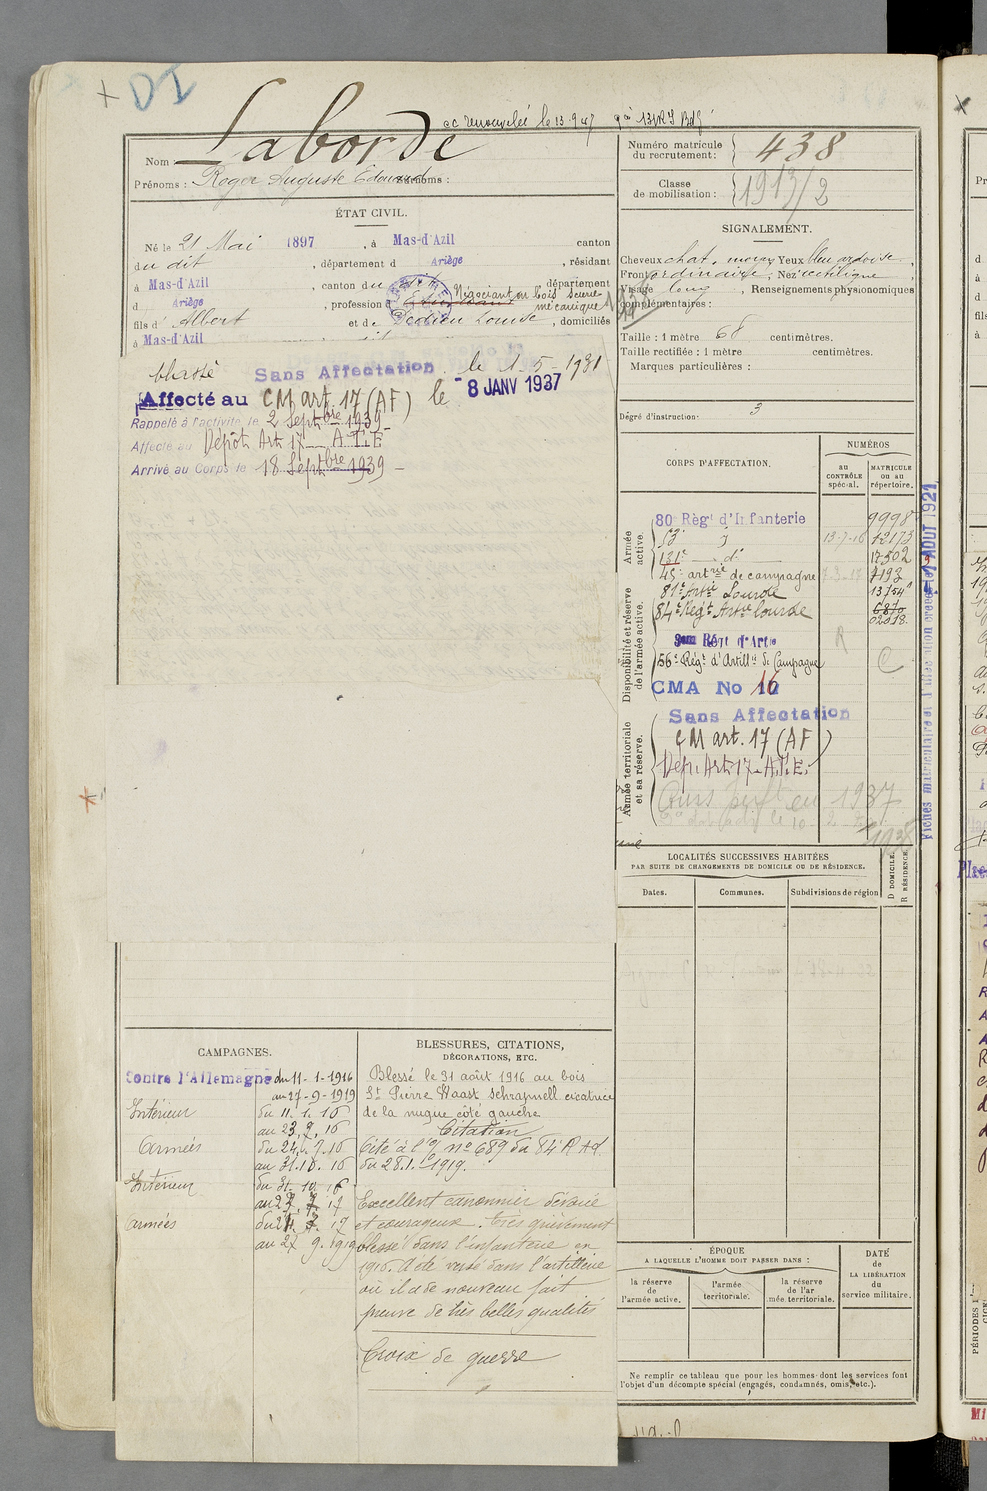 DI
cc renouvelée le 13.9.47
Nom Laborde
Prénoms : Roger Auguste Edouard Surnoms :
Numéro matricule du recrutement : 438
Classe de mobilisation : 1913/2
ÉTAT CIVIL.
Né le 21 Mai 1897, à Mas-d'Azil canton
du dit, département d Ariège, résidant
à Mas-d'Azil, canton du dit département
d Ariège, profession d Négociant en bois scierie
mécanique
fils d' Albert et de Dedieu Louise, domiciliés
à Mas-d'Azil
Classé Sans Affectation le 1-5-1931
Affecté au CM art. 17 (AF) le 8 JANV 1937
Rappelé à l'activité le 2 Septbre 1939
Affecté au Dépôt Art 17 A.T.E
Arrivé au Corps le 18 Septbre 1939
SIGNALEMENT.
Cheveux chat. moyen Yeux bleu ardoise,
Front ordinaire, Nez rectiligne
Visage long, Renseignements physionomiques
complémentaires :
Taille : 1 mètre 68 centimètres.
Taille rectifiée : 1 mètre centimètres.
Marques particulières :
Degré d'instruction : 3
CORPS D'AFFECTATION.
NUMÉROS
au CONTRÔLE spécial.
MATRICULE ou au répertoire.
Armée active.
80e Régt d'Infanterie 9998
53e 13-7-16 12173
131e do 17502
45e artrie de campagne 7-3-17 7193
Disponibilité et réserve de l'armée active.
81e Artie Lourde 13754
84e Régt Artie lourde 6870
02018
Régt d'Artie
56e Régt d'Artillie de Campagne
CMA No 16
R
C
Armée territoriale et sa réserve.
Sans Affectation
CM art. 17 (AF)
Dépôt Art 17 A.T.E.
1937
1938
1 AOUT 1921
LOCALITÉS SUCCESSIVES HABITÉES
PAR SUITE DE CHANGEMENTS DE DOMICILE OU DE RÉSIDENCE.
Dates.
Communes.
Subdivisions de région
D DOMICILE.
R RÉSIDENCE.
CAMPAGNES.
Contre l'Allemagne du 11-1-1916
au 27-9-1919
Intérieur du 11.1.16
au 23.9.16
Armées du 24.9.16
au 31.10.16
Intérieur du 31.10.16
au 23.7.17
Armées du 24.7.17
au 27.9.1919
BLESSURES, CITATIONS,
DÉCORATIONS, ETC.
Blessé le 31 août 1916 au bois
St Pierre Waast schrapnell cicatrice
de la nuque côté gauche
Citation
Cité à l'O/ no 689 du 84 R Ad
du 28.1.1919.
Excellent canonnier dévoué
et courageux. très grièvement
blessé dans l'infanterie en
1916. A été versé dans l'artillerie
où il a de nouveau fait
preuve de très belles qualités
Croix de guerre
ÉPOQUE
A LAQUELLE L'HOMME DOIT PASSER DANS :
la réserve de l'armée active.
l'armée territoriale.
la réserve de l'ar mée territoriale.
DATE de LA LIBÉRATION du service militaire.
Ne remplir ce tableau que pour les hommes dont les services font
l'objet d'un décompte spécial (engagés, condamnés, omis, etc.).